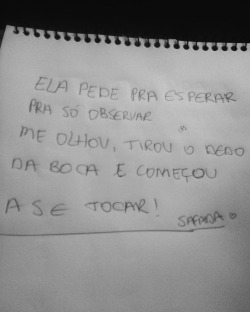 ELA PEDE PRA ESPERAR
PRA SÓ OBSERVAR
ME OLHOU, TIROU O DEDO
DA BOCA E COMEÇOU
A SE TOCAR!
SAFADA